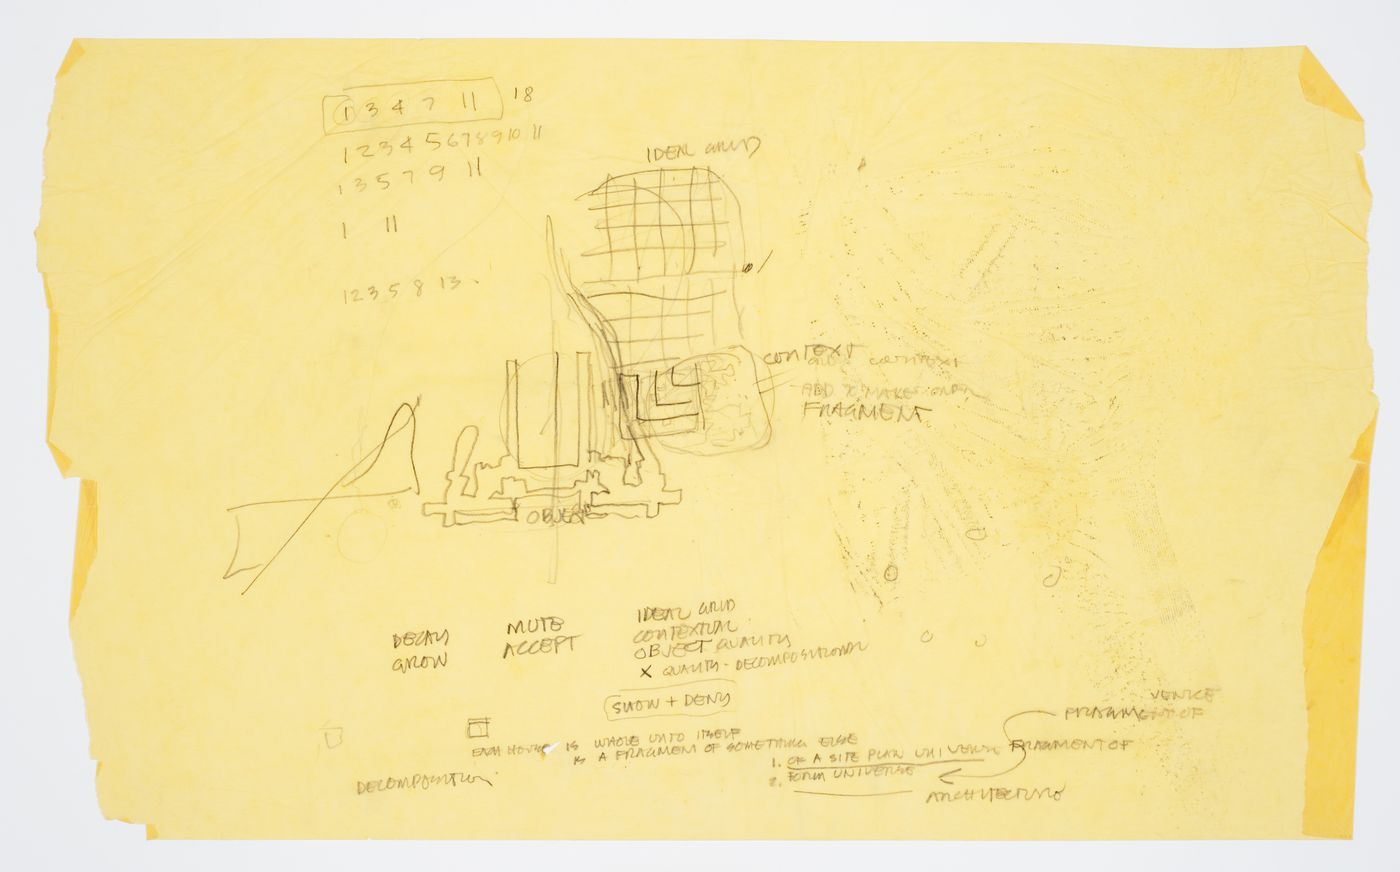 1 3 4 7 11 18
1 2 3 4 5 6 7 8 9 10 11
1 3 5 7 9 11
1 11
1 2 3 5 8 13
IDEAL GRID
CONTEXT
CONTEXT
ADD X, MAKE
FRAGMENT
OBJECT
DECAY
GROW
MUTE
ACCEPT
IDEAL GRID
CONTEXTUAL
OBJECT QUALITY
X QUALITY - DECOMPOSITIONAL
SHOW + DENY
EACH HOUSE IS WHOLE UNTO ITSELF
IS A FRAGMENT OF SOMETHING ELSE
1. OF A SITE PLAN UNIVERSE FRAGMENT OF
2. FORM UNIVERSE
VENICE
FRAGMENT OF
ARCHITECTURE
DECOMPOSITION